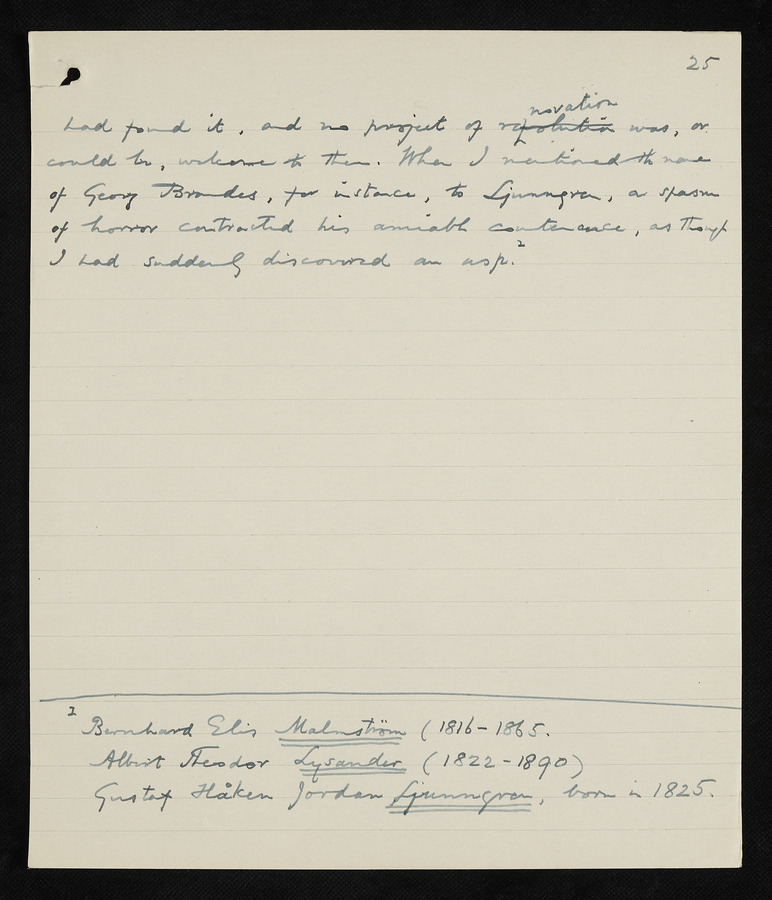 25
novation
had found it, and no project of revolution was, or
could be, welcome to them. When I mentioned the name
of Georg Brandes, for instance, to Ljunngren, a spasm
of horror contracted his amiable countenance, as though
I had suddenly discovered an asp.2
2 Bernhard Elis Malmström (1816-1865.
Albert Teodor Lysander (1822-1890)
Gustaf Håken Jordan Ljunngren, born in 1825.